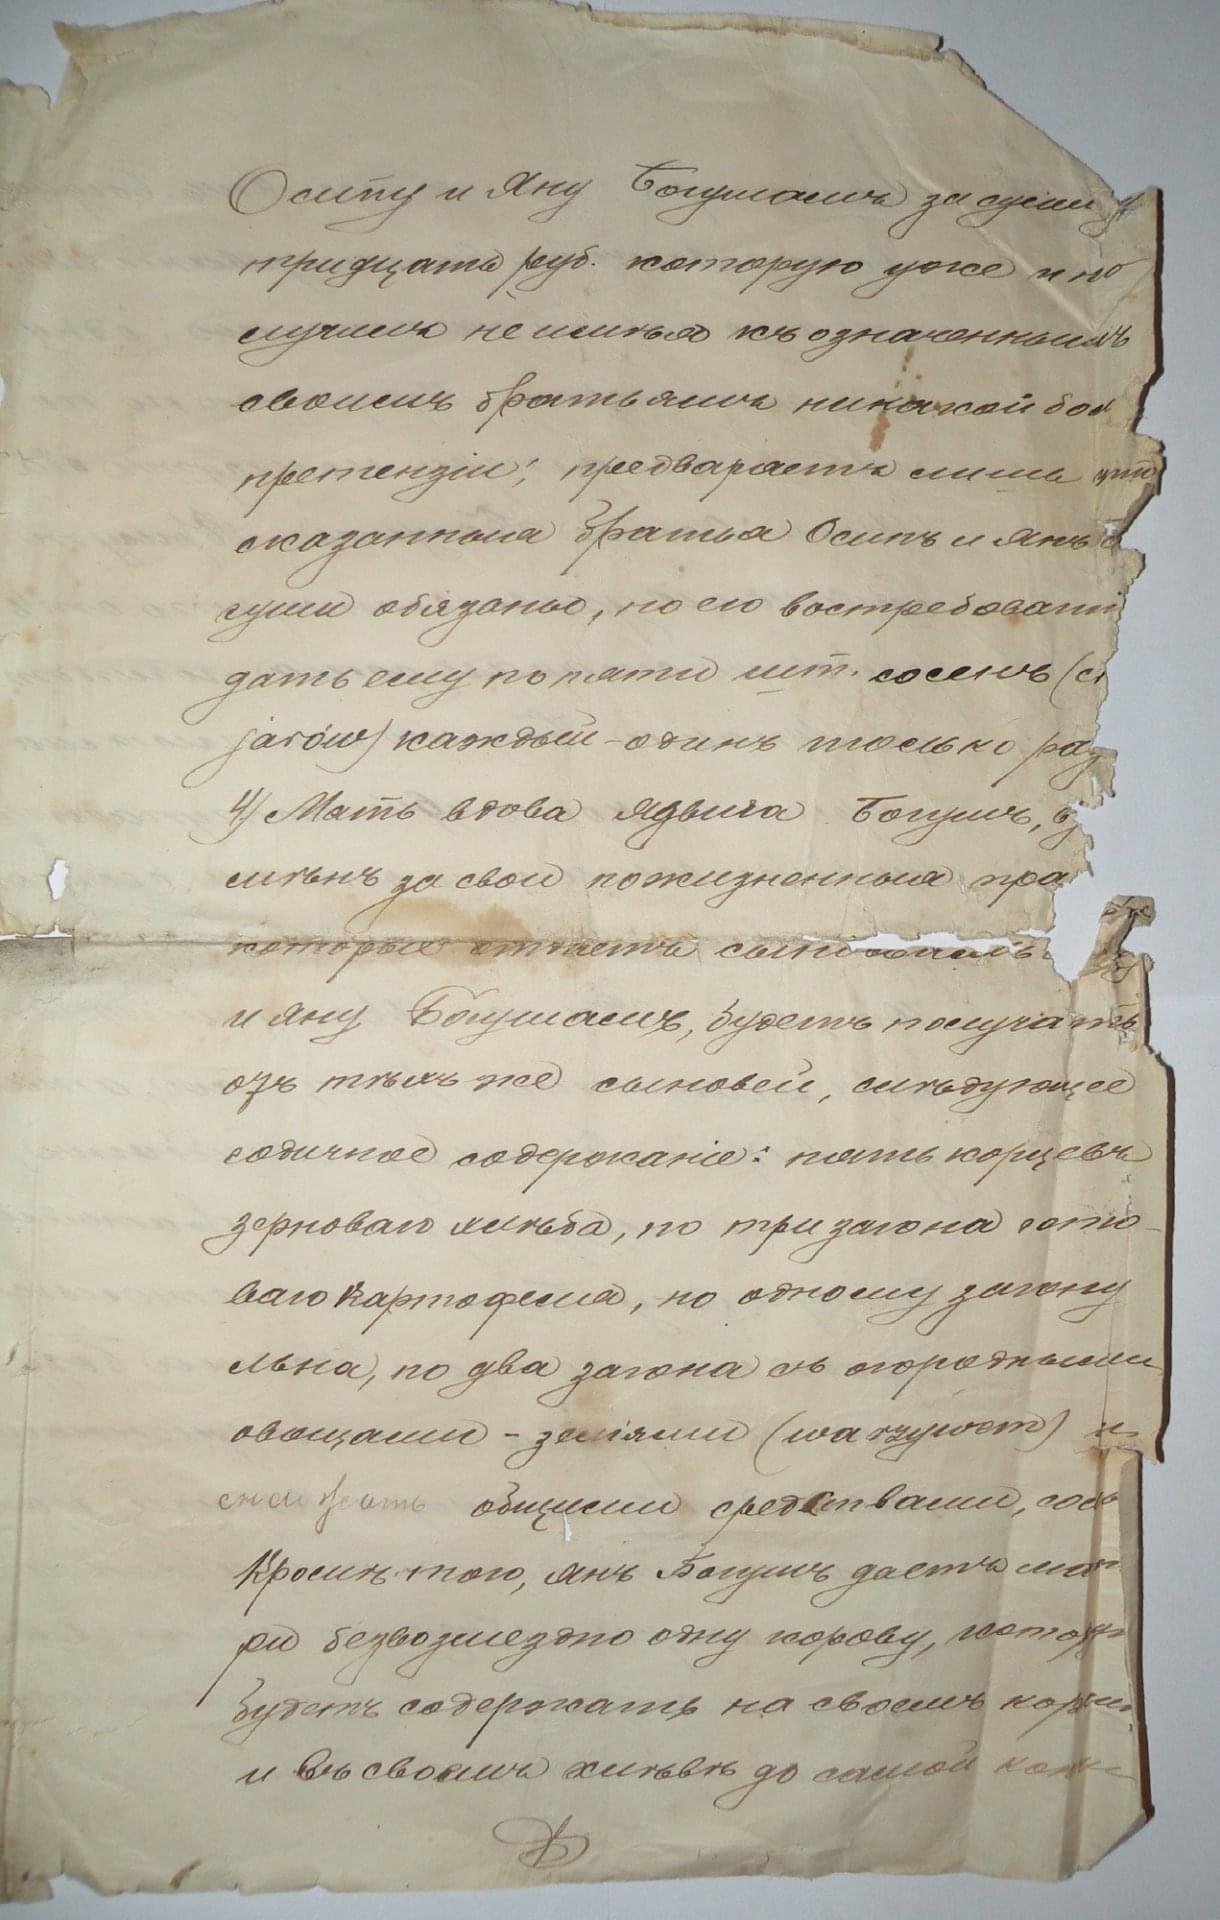 Осипу и Яну Богушамъ за сумму
тридцать руб. которую уже и по
лучилъ не имѣя къ означеннымъ
своимъ братьямъ никакой бол
претензіи; предваряетъ лишь что
сказанныя братья Осипъ и Янъ
гуши обязаны, по его востребовані
дать ему по пяти шт. сосенъ (
jarów) каждый - одинъ только раз
4) Мать вдова Ядвига Богушъ, вз
мѣнъ за свои пожизненныя пра
которыя отдаетъ сыновьямъ
и Яну Богушамъ, будетъ получать
отъ тѣхъ же сыновей, слѣдующее
годичное содержаніе: пять корцевъ
зерноваго хлѣба, по три загона гото-
ваго картофеля, по одному загону
льна, по два загона съ огородными
овощами - зеліями (warzywem) и
общими средствами, сов
Кромѣ того, Янъ Богушъ даетъ мате
ри безвозмездно одну корову, котору
будетъ содержать на своемъ кормѣ
и въ своемъ хлѣвѣ до самой кон